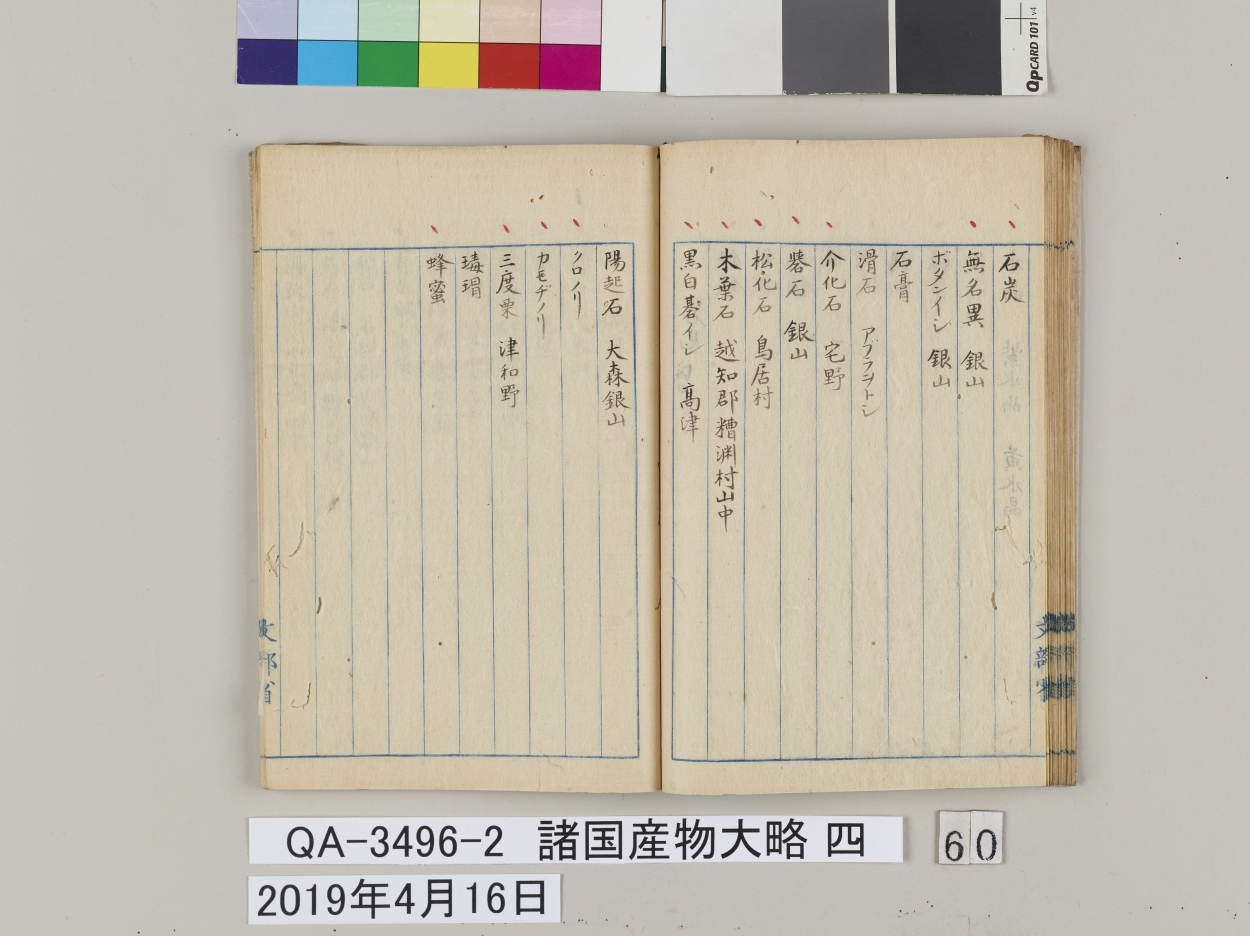 石炭
無名異 銀山
ボタンイシ 銀山
石膏
滑石 アブラヲトシ
介化石 宅野
礬石 銀山
松化石 鳥居村
木葉石 越知郡糟渊村山中
黒白碁イシ 高津
陽起石 大森銀山
クロノリ
カモヂノリ
三度栗 津和野
瑇瑁
蜂蜜
文部省
文部省
QA-3496-2 諸国産物大略 四
60
2019年4月16日
QPCARD 101 v4